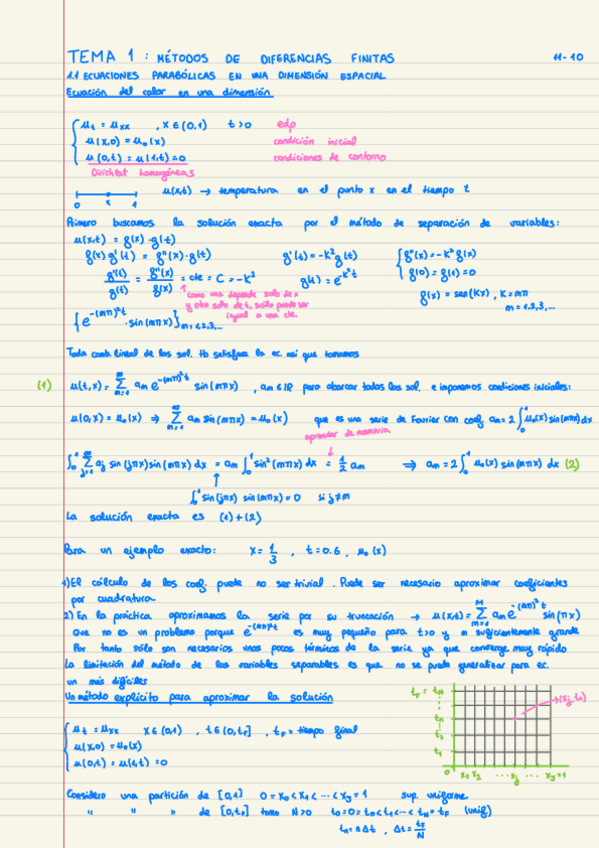 TEMA 1 : MÉTODOS DE DIFERENCIAS FINITAS 11-10
1.1 ECUACIONES PARABÓLICAS EN UNA DIMENSIÓN ESPACIAL
Ecuación del calor en una dimensión
u_t = u_xx , x ∈ (0,1) t>0 edp
u(x,0) = u_0(x) condición inicial
u(0,t) = u(1,t) = 0 condiciones de contorno
Dirichlet homogéneas
0 x 1 u(x,t) → temperatura en el punto x en el tiempo t
Primero buscamos la solución exacta por el método de separación de variables:
u(x,t) = f(x)·g(t)
f(x) g'(t) = f''(x)·g(t) g'(t) = -K² g(t) { f''(x) = -K² f(x)
g'(t)/g(t) = f''(x)/f(x) = cte = C = -K² g(t) = e^{-K²t} f(0) = f(1) = 0
como una depende solo de x f(x) = sen(Kx), K = mπ
y otra solo de t, solo puede ser m = 1,2,3,...
igual a una cte.
{e^{-(mπ)²t} · sin(mπx)}_{m=1,2,3,...}
Toda comb. lineal de las sol. tb satisface la ec. así que tomamos
(1) u(t,x) = Σ_{m=1}^{∞} a_m e^{-(mπ)²t} sin(mπx) , a_m ∈ ℝ para abarcar todas las sol. e imponemos condiciones iniciales:
u(0,x) = u_0(x) ⇒ Σ_{m=1}^{∞} a_m sin(mπx) = u_0(x) que es una serie de Fourier con coef. a_m = 2 ∫_0^1 u_0(x) sin(mπx) dx
aprender de memoria
∫_0^1 Σ_{j=1}^{∞} a_j sin(jπx) sin(mπx) dx = a_m ∫_0^1 sin²(mπx) dx = 1/2 a_m ⇒ a_m = 2 ∫_0^1 u_0(x) sin(mπx) dx (2)
∫_0^1 sin(jπx) sin(mπx) = 0 si j ≠ m
La solución exacta es (1) + (2)
Para un ejemplo exacto: x = 1/3 , t = 0.6 , u_0(x)
1) El cálculo de los coef. puede no ser trivial. Puede ser necesario aproximar coeficientes
por cuadratura
2) En la práctica aproximamos la serie por su truncación → u(x,t) = Σ_{m=1}^{M} a_m e^{-(mπ)²t} sin(πx)
Que no es un problema porque e^{-(mπ)²t} es muy pequeño para t>0 y m suficientemente grande
Por tanto sólo son necesarios unos pocos términos de la serie ya que converge muy rápido
La limitación del método de las variables separables es que no se puede generalizar para ec.
un más difíciles
Un método explícito para aproximar la solución
u_t = u_xx x ∈ (0,1) , t ∈ (0,t_F] , t_F = tiempo final
u(x,0) = u_0(x)
u(0,t) = u(1,t) = 0
t_F = t_N
t_n
t_2
t_1
0 x_1 x_2 ... x_j ... x_J = 1
(x_j, t_n)
Considero una partición de [0,1] 0 = x_0 < x_1 < ... < x_J = 1 sup. uniforme
" " " de [0,t_F] tomo N>0 t_0 = 0 = t_0 < t_1 < ... < t_N = t_F (unif)
t_n = n Δt , Δt = t_F/N